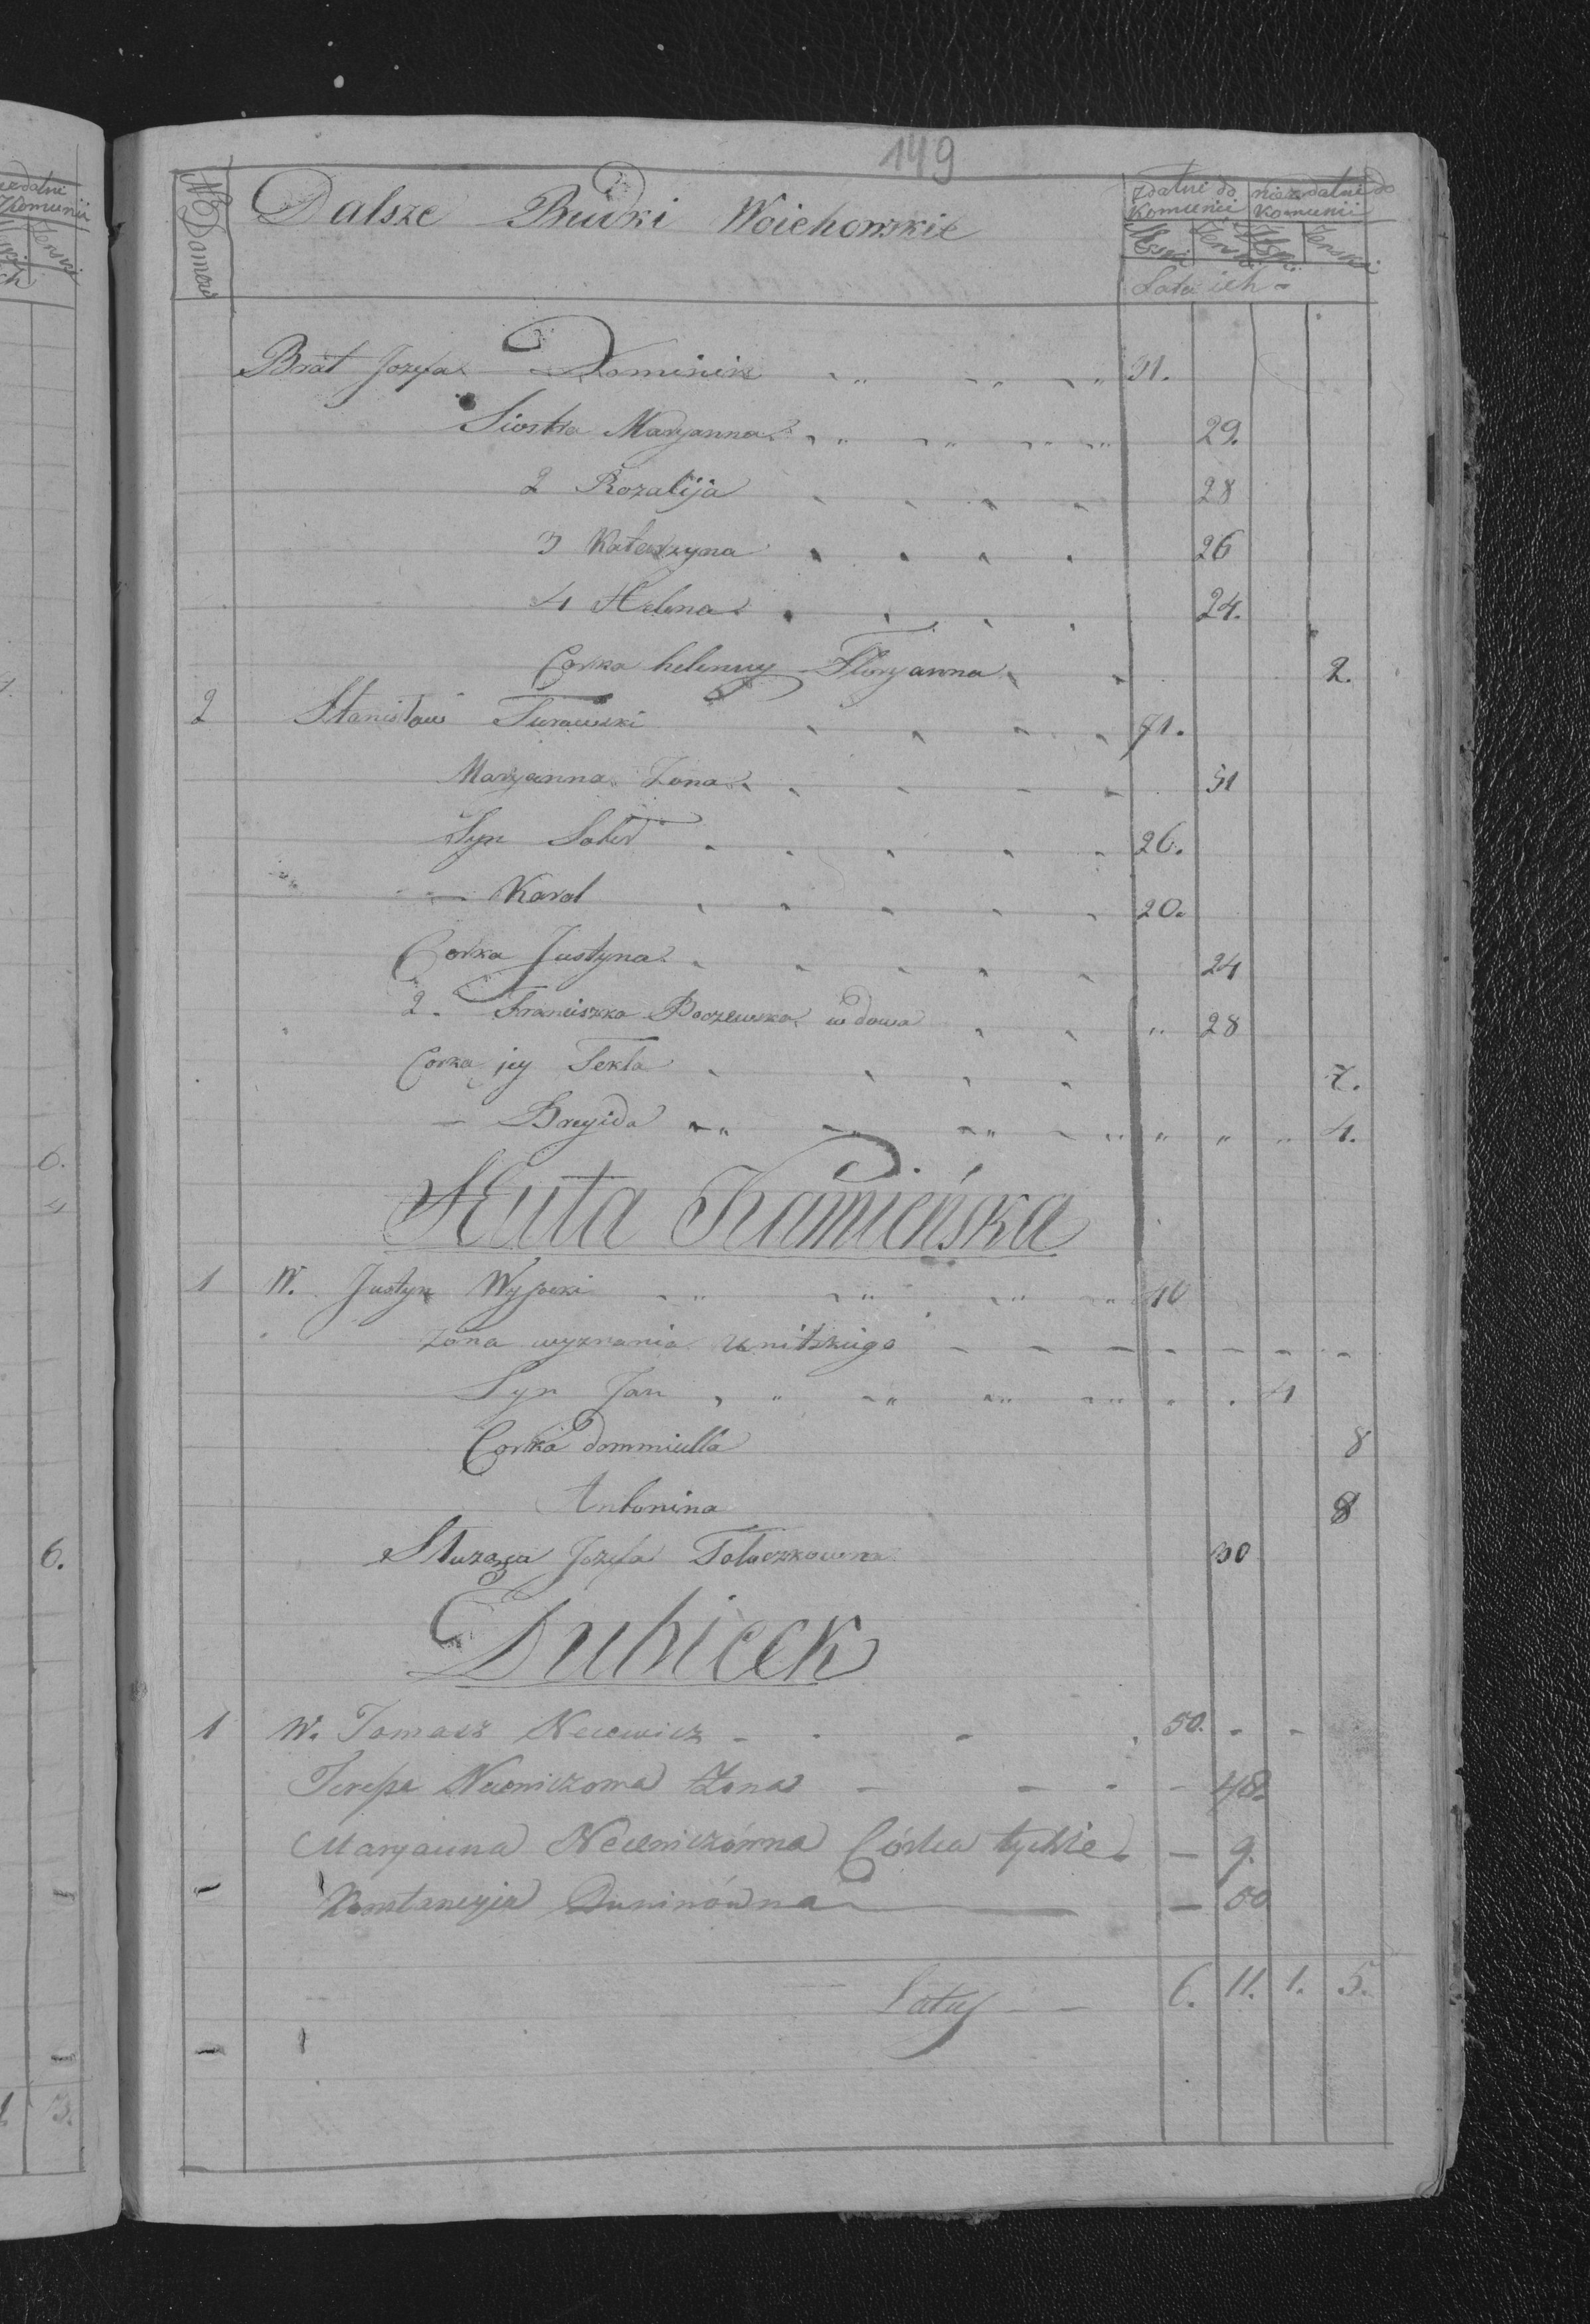 149
No Domow
Dalsze Budki Woiehowskie
zdatni do Komunii
niezdatni do Komunii
Męski Żenski Męski Żenski
Lata ich
Brat Jozefa Dominik 31.
Siostra Maryanna 29.
2 Rozalija 28
3 Katarzyna 26
4 Helena 24.
Corka heleny Floryanna 2.
2 Stanisław Turawski 71.
Maryanna Zona 51
Syn 26.
— Karol 20.
Corka Justyna 24
2. Franciszka Baczewska wdowa 28
Corka jey Tekla 7.
— Brygida 4.
Huta Kamieńska
1 W. Justyn Wysocki 40
żona wyznania unitskiego
Syn Jan 4
Corka dommiella 8
Antonina 8
Służąca Jozefa Tołoczkowna 30
Dubicck
1 W. Tomasz Necewicz 50.
Teressa Necewiczowa Żona 48.
Maryanna Necewiczówna Córka tychże — 9.
Konstancyja Duninówna — 50
Latus — 6. 11. 1. 5.